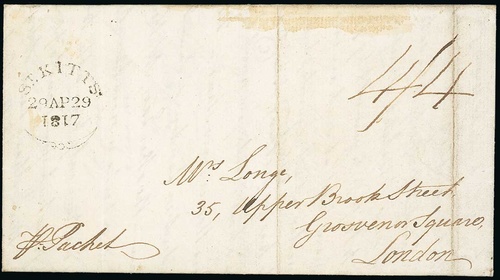 ST. KITTS
29AP29
1817
4/4
Mrs. Longe,
35, Upper Brook Street,
Grosvenor Square,
London
Pr. Packet